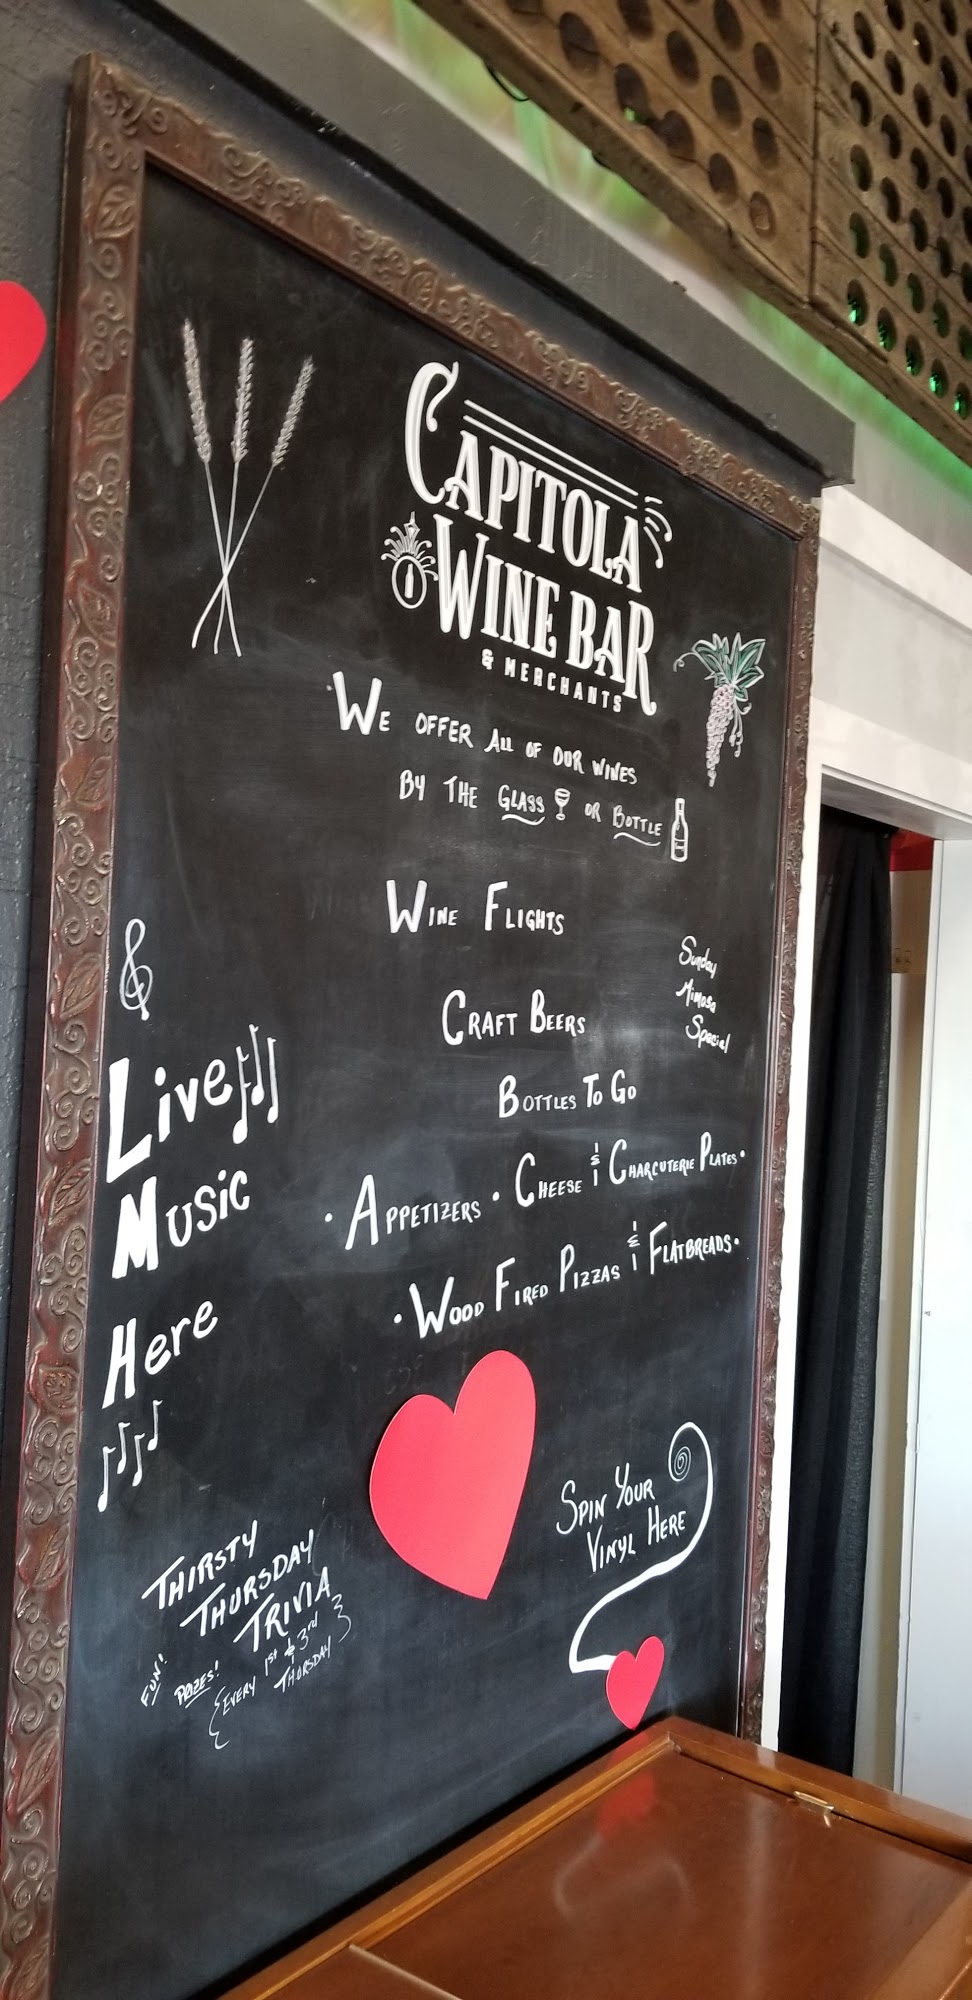 CAPITOLA
WINE BAR
& MERCHANTS
WE OFFER ALL OF OUR WINES
BY THE GLASS OR BOTTLE
WINE FLIGHTS
Sunday
Mimosa
Special
CRAFT BEERS
BOTTLES TO GO
• APPETIZERS • CHEESE & CHARCUTERIE PLATES •
• WOOD FIRED PIZZAS & FLATBREADS •
Live
Music
Here
SPIN YOUR
VINYL HERE
THIRSTY
THURSDAY
TRIVIA
FUN! PRIZES!
{EVERY 1st & 3rd
THURSDAY}